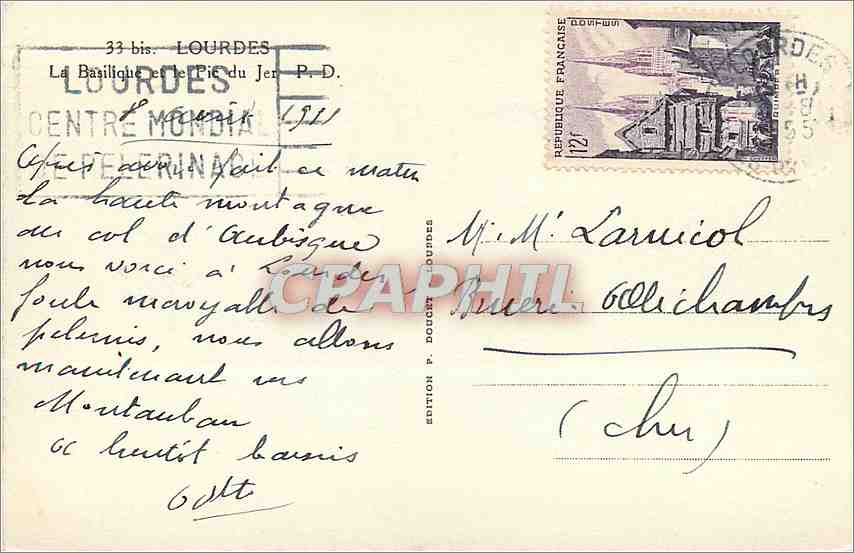 33 bis. LOURDES
La Basilique et le Pic du Jer P. D.
LOURDES
CENTRE MONDIAL
DE PELERINAGE
8 1911
Après avoir fait ce matin
la haute montagne
du col d'Aubisque
nous voici à Lourdes
foule incroyable de
pelerins, nous allons
maintenant vers
Montauban
A bientôt baisers
EDITION P. DOUCET LOURDES
REPUBLIQUE FRANÇAISE
POSTES
12f
QUIMPER
LOURDES
M. Me Larnicol
(Cher)
CPAPHIL